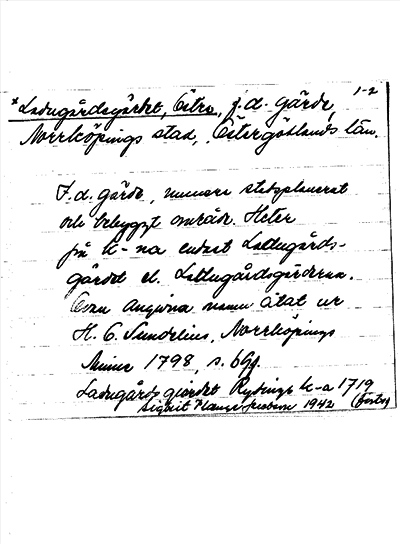 1-2
*Ladugårdsgärdet, Östra, f.d. gärde,
Norrköpings stad, Östergötlands län.
F.d. gärde, numera stadsplanerat
och bebyggt område. Heter
på k-na endast Ladugårds-
gärdet el. Ladugårdsgärdena.
Ovan angivna namn citat ur
H. O. Sundelius, Norrköpings
Minne 1798, s. 69f.
Ladugårds giärdet Rydings k-a 1719
Sigurd 1942